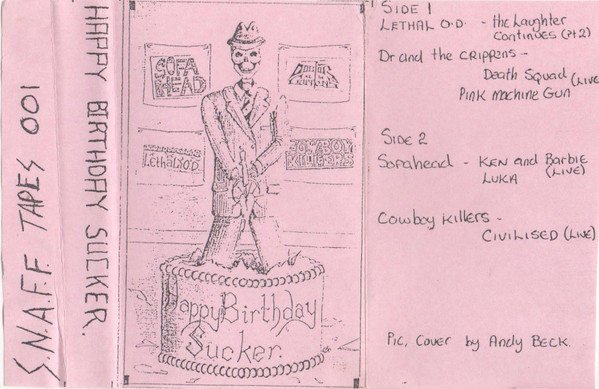 S.N.A.F.F. TAPES 001
HAPPY BIRTHDAY SUCKER.
SOFA
HEAD
DOCTOR
AND THE
CRIPPENS
Lethal O.D.
COWBOY
KILLERS
Happy Birthday
Sucker.
SIDE 1
LETHAL O.D. - the Laughter
Continues (Pt 2)
Dr and the CRIPPENS -
Death Squad
(LIVE
Pink Machine Gun
SIDE 2
Sofahead - KEN and Barbie
(LIVE)
LUKA
Cowboy Killers -
CIVILISED (LIVE)
Pic, Cover by Andy BECK